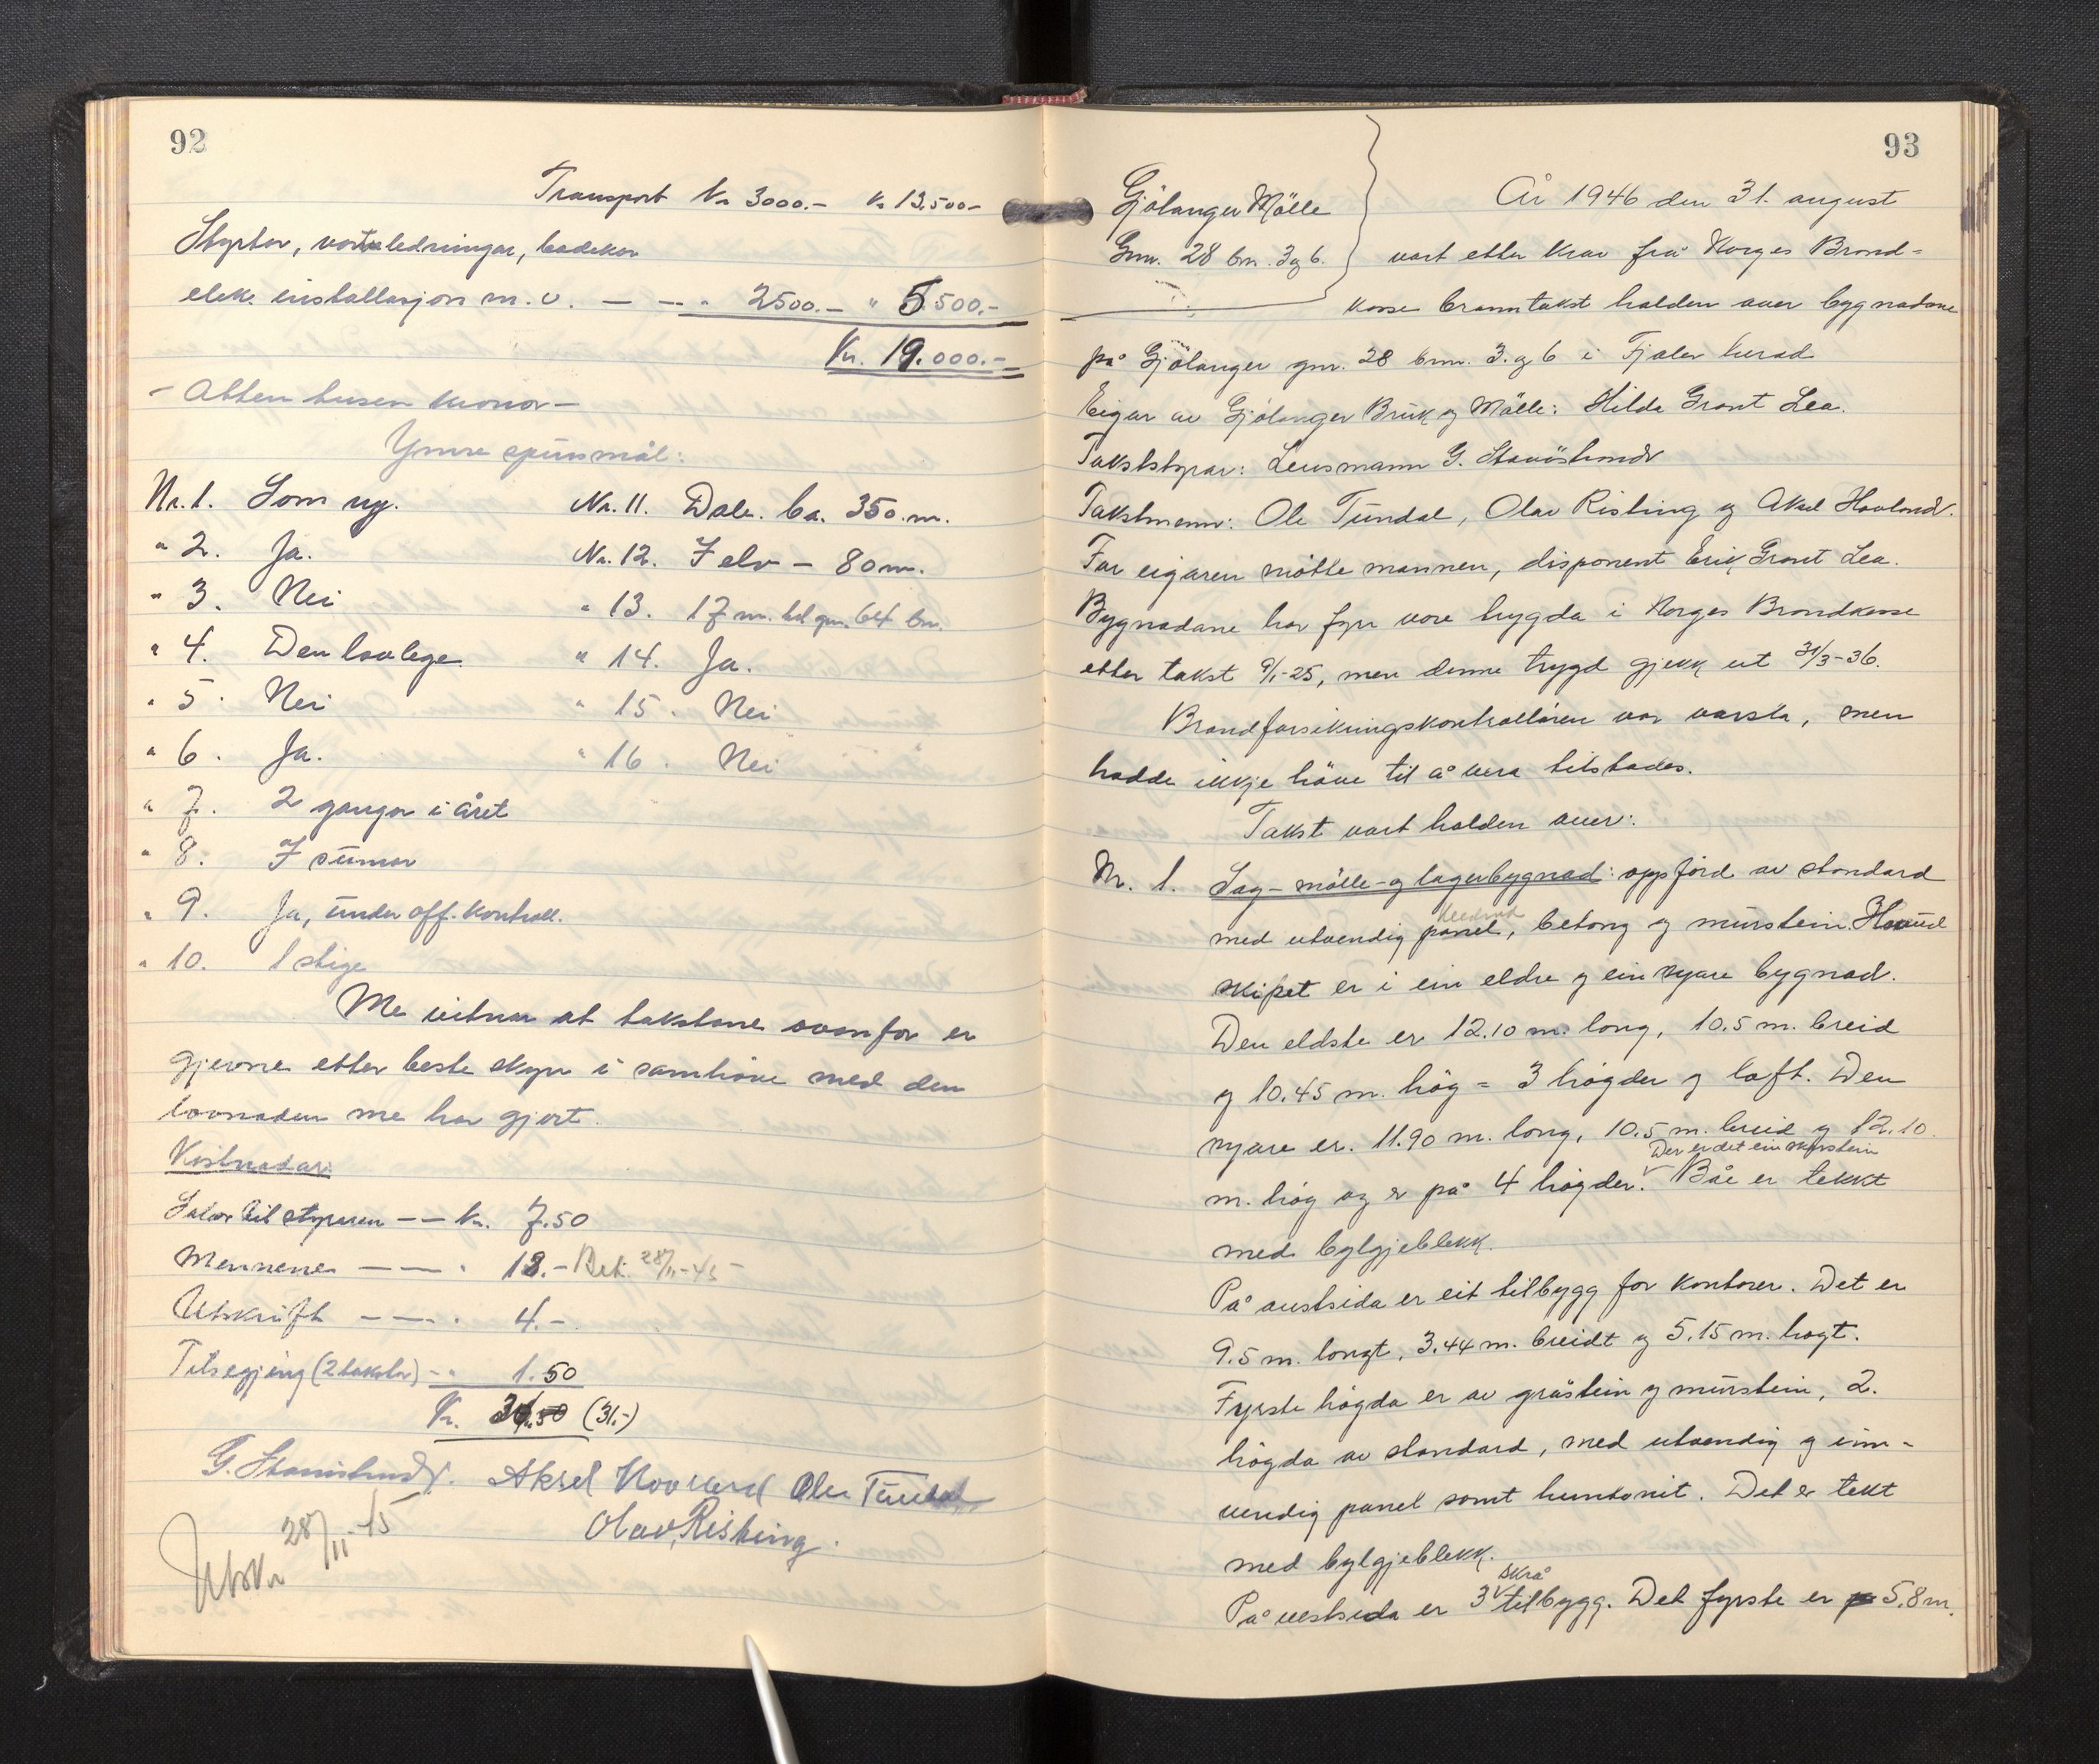 92
Transport Kr 3000.- Kr 13.500-
Styrtor, vassledningar, badekar
elek. installasjon m. v. — — " 2500.- " 5500.-
Kr. 19.000.-
- Atten tusen kronor -
Ymse spursmål:
Nr. 1. Som ny. Nr. 11. Dale. Ca. 350 m.
" 2. Ja. Nr. 12. I elv - 80 m.
" 3. Nei " 13. 17 m. til gnr. 64 bnr.
" 4. Den lovlege " 14. Ja.
" 5. Nei " 15. Nei
" 6. Ja. " 16. Nei
" 7. 2 gangor i året
" 8. I sumar
" 9. Ja, under off. kontroll.
" 10. 1 stige
Me vitnar at takstane ovanfor er
gjevne etter beste skyn i samhøve med den
lovnaden me har gjort.
Kostnadar:
Salær til styraren — — kr. 7.50
Mennene — — " 18.- Bet. 28/11-45
Utskrift — — " 4.-
Tilsegjing (2 takstor) — " 1.50
Kr. (31.-)
G. Staurstrandr. Aksel Hovland Ole Tundal
Olav Risting.
Utskr 28/11-45
93
Gjölanger Mölle
Gnr. 28 bn. 3 og 6.
År 1946 den 31. august
vart etter krav frå Norges Brand=
kasse branntakst halden over bygnadane
på Gjölanger gnr. 28 bnr. 3. og 6 i Fjaler herad
Eigar av Gjölanger Bruk og Mölle: Hilda Grant Lea.
Takststyrar: Lensmann G. Staurstrandr
Takstmenn: Ole Tundal, Olav Risting og Aksel Hovland.
For eigaren møtte mannen, disponent Erik Grant Lea.
Bygnadane har fyrr vore trygda i Norges Brandkasse
etter takst 9/1-25, men denne trygd gjekk ut 31/3-36.
Brandforsikringskontrolløren var varsla, men
hadde ikkje høve til å vera tilstades.
Takst vart halden over:
Nr. 1. Sag- mölle- og lagerbygnad: oppförd av standard
med utvendig panel, betong og murstein. Hovud
skipet er i ein eldre og ein nyare bygnad.
Den eldste er 12.10 m. lang, 10.5 m. breid
og 10.45 m. høg = 3 høgder og loft. Den
nyare er. 11.90 m. lang, 10.5 m. breid og 12.10
Der er det ein skorstein
m. høg og er på 4 høgder. Båe er tekkt
med bylgjeblekk.
På austsida er eit tilbygg for kontorer. Det er
9.5 m. langt, 3.44 m. breidt og 5.15 m. høgt.
Fyrste høgda er av gråstein og murstein, 2.
høgda av standard, med utvendig og inn-
vendig panel samt huntonit. Det er tekt
med bylgjeblekk.
skrå
På vestsida er 3 tilbygg. Det fyrste er 5,8 m.